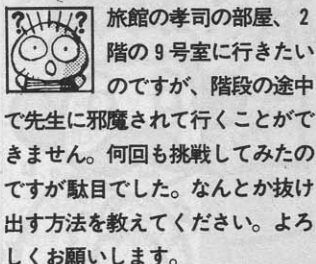 旅館の孝司の部屋、2
階の9号室に行きたい
のですが、階段の途中
で先生に邪魔されて行くことがで
きません。何回も挑戦してみたの
ですが駄目でした。なんとか抜け
出す方法を教えてください。よろ
しくお願いします。
??